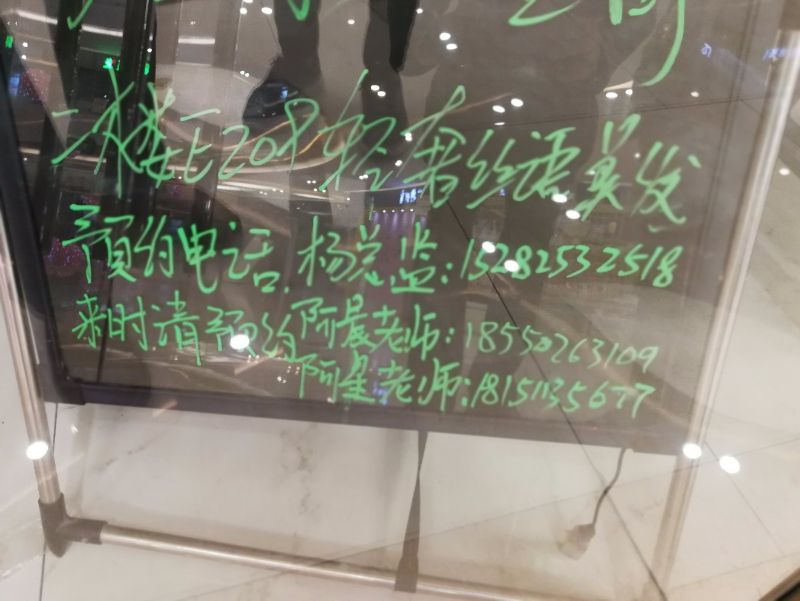 二楼E208轻奢丝语美发
预约电话.杨总监:15282532518
来时请预约阿晨老师:18550263109
阿星老师:18151135677